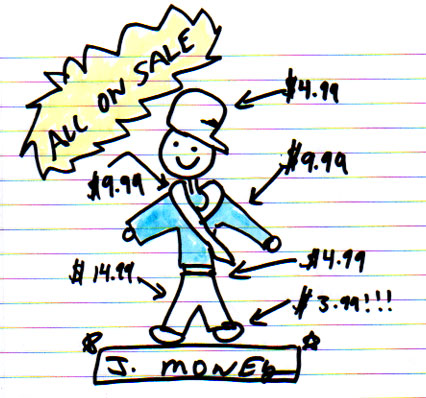 ALL ON SALE
$4.99
$9.99
$9.99
$4.99
$14.99
$3.99!!!
J. MONEY